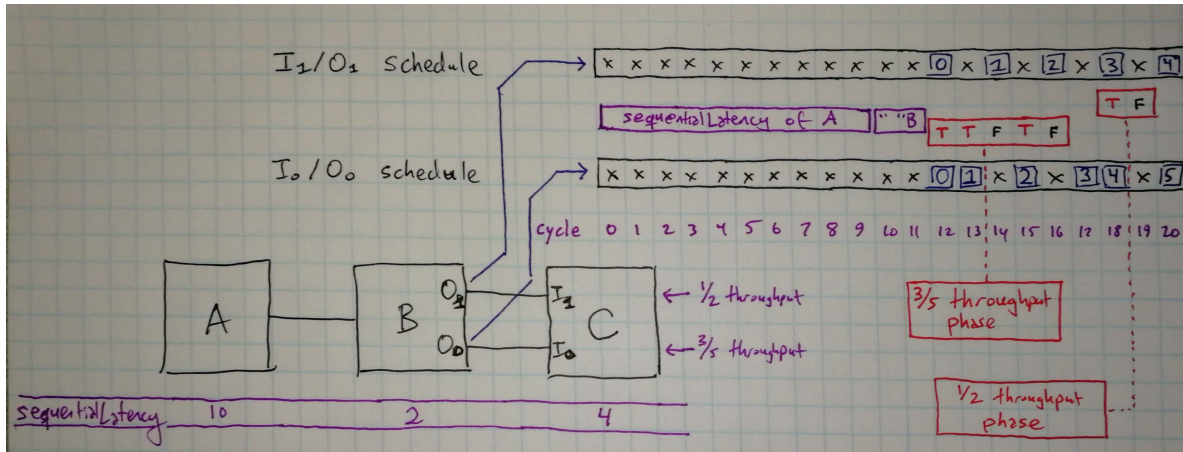 I1/O1 schedule
x x x x x x x x x x x x 0 x 1 x 2 x 3 x 4
T F
sequentialLatency of A " "B
T T F T F
I0/O0 schedule
x x x x x x x x x x x x 0 1 x 2 x 3 4 x 5
cycle 0 1 2 3 4 5 6 7 8 9 10 11 12 13 14 15 16 17 18 19 20
A
B
O1
O0
I1
I0
C
← 1/2 throughput
← 3/5 throughput
3/5 throughput
phase
1/2 throughput
phase
sequentialLatency 10 2 4